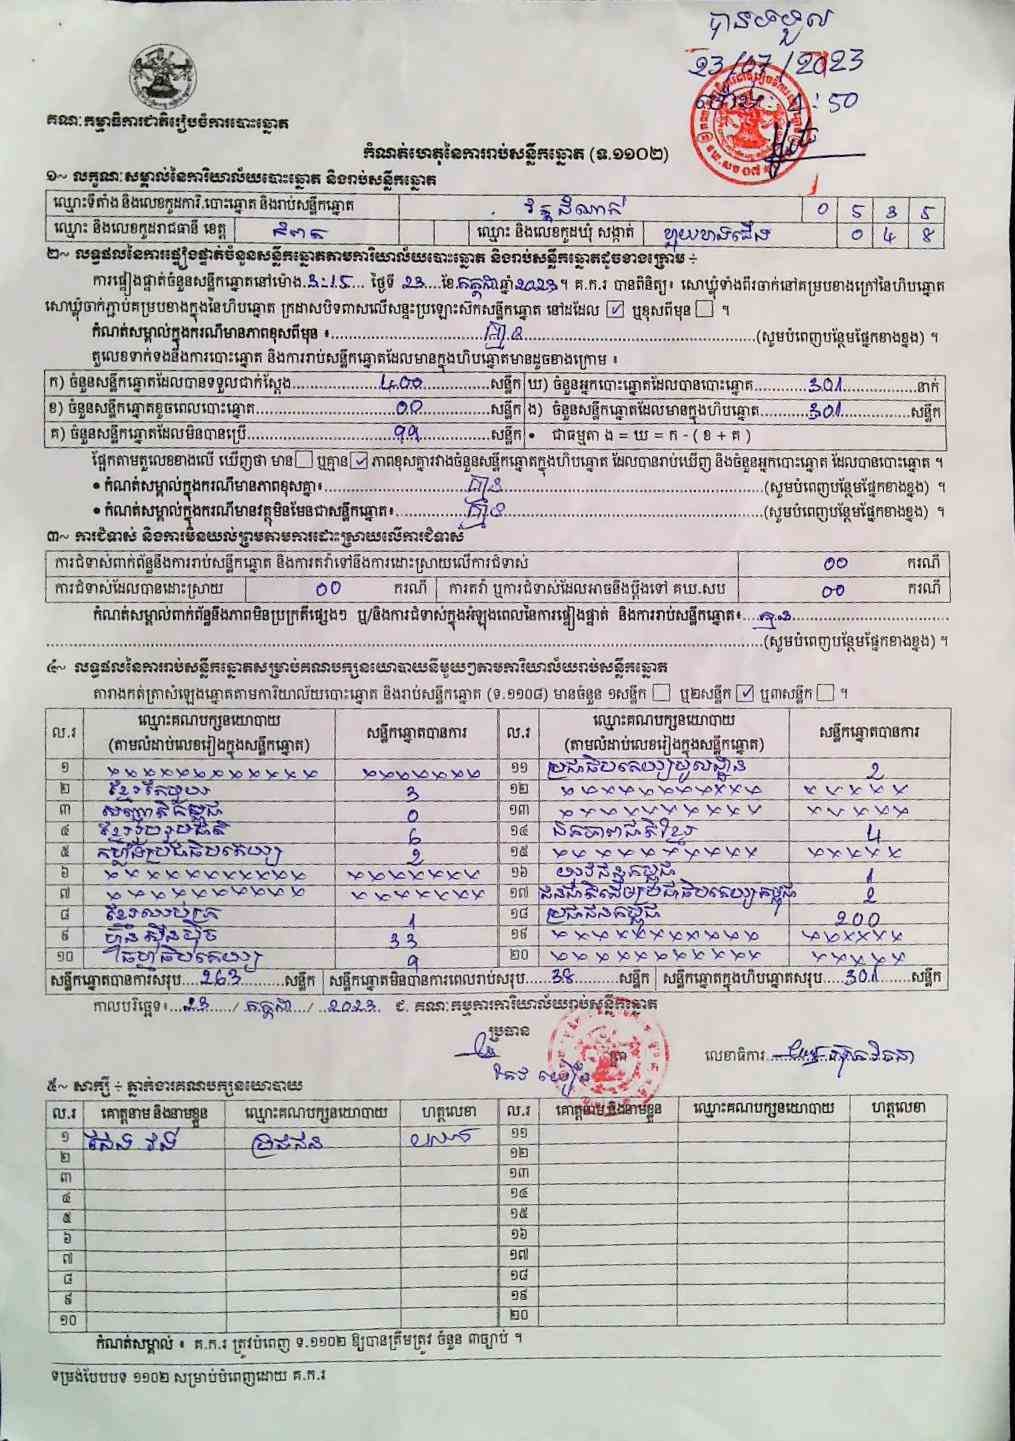 បានទទួល
23/07/2023
ម៉ោង : 50
គណៈកម្មាធិការជាតិរៀបចំការបោះឆ្នោត
កំណត់ហេតុនៃការរាប់សន្លឹកឆ្នោត (ទ.១១០២)
១~ លក្ខណៈសម្គាល់នៃការិយាល័យបោះឆ្នោត និងរាប់សន្លឹកឆ្នោត
ឈ្មោះទីតាំង និងលេខកូដការិ.បោះឆ្នោត និងរាប់សន្លឹកឆ្នោត វត្ត 0 5 3 5
ឈ្មោះ និងលេខកូដរាជធានី ខេត្ត ឈ្មោះ និងលេខកូដឃុំ សង្កាត់ 0 4 8
២~ លទ្ធផលនៃការផ្ទៀងផ្ទាត់ចំនួនសន្លឹកឆ្នោតតាមការិយាល័យបោះឆ្នោត និងរាប់សន្លឹកឆ្នោតដូចខាងក្រោម ÷
ការផ្ទៀងផ្ទាត់ចំនួនសន្លឹកឆ្នោតនៅម៉ោង.3:15... ថ្ងៃទី 23....ខែ.កក្កដា ឆ្នាំ2023. គ.ក.រ បានពិនិត្យ៖ សោឃ្លុំទាំងពីរចាក់នៅគម្របខាងក្រៅនៃហិបឆ្នោត
សោឃ្លុំចាក់ភ្ជាប់គម្របខាងក្នុងនៃហិបឆ្នោត ក្រដាសបិទពាសលើសន្ទះប្រឡោះស៊កសន្លឹកឆ្នោត នៅដដែល ☑ ឬខុសពីមុន ☐ ។
កំណត់សម្គាល់ក្នុងករណីមានភាពខុសពីមុន ៖.....គ្មាន.....(សូមបំពេញបន្ថែមផ្នែកខាងខ្នង) ។
តួលេខទាក់ទងនឹងការបោះឆ្នោត និងការរាប់សន្លឹកឆ្នោតដែលមានក្នុងហិបឆ្នោតមានដូចខាងក្រោម ៖
ក) ចំនួនសន្លឹកឆ្នោតដែលបានទទួលជាក់ស្ដែង.....400.....សន្លឹក ឃ) ចំនួនអ្នកបោះឆ្នោតដែលបានបោះឆ្នោត.....301.....នាក់
ខ) ចំនួនសន្លឹកឆ្នោតខូចពេលបោះឆ្នោត.....00.....សន្លឹក ង) ចំនួនសន្លឹកឆ្នោតដែលមានក្នុងហិបឆ្នោត.....301.....សន្លឹក
គ) ចំនួនសន្លឹកឆ្នោតដែលមិនបានប្រើ.....99.....សន្លឹក • ជាធម្មតា ង = ឃ = ក - ( ខ + គ )
ផ្អែកតាមតួលេខខាងលើ ឃើញថា មាន☐ ឬគ្មាន☑ ភាពខុសគ្នារវាងចំនួនសន្លឹកឆ្នោតក្នុងហិបឆ្នោត ដែលបានរាប់ឃើញ និងចំនួនអ្នកបោះឆ្នោត ដែលបានបោះឆ្នោត ។
• កំណត់សម្គាល់ក្នុងករណីមានភាពខុសគ្នា៖.....គ្មាន.....(សូមបំពេញបន្ថែមផ្នែកខាងខ្នង) ។
• កំណត់សម្គាល់ក្នុងករណីមានវត្ថុមិនមែនជាសន្លឹកឆ្នោត៖.....គ្មាន.....(សូមបំពេញបន្ថែមផ្នែកខាងខ្នង) ។
៣~ ការជំទាស់ និងការមិនយល់ព្រមតាមការដោះស្រាយលើការជំទាស់
ការជំទាស់ពាក់ព័ន្ធនឹងការរាប់សន្លឹកឆ្នោត និងការតវ៉ាទៅនឹងការដោះស្រាយលើការជំទាស់ 00 ករណី
ការជំទាស់ដែលបានដោះស្រាយ 00 ករណី ការតវ៉ា ឬការជំទាស់ដែលអាចនឹងប្ដឹងទៅ គឃ.សប 00 ករណី
កំណត់សម្គាល់ពាក់ព័ន្ធនឹងភាពមិនប្រក្រតីផ្សេងៗ ឬ/និងការជំទាស់ក្នុងអំឡុងពេលនៃការផ្ទៀងផ្ទាត់ និងការរាប់សន្លឹកឆ្នោត៖....គ្មាន.....
.....(សូមបំពេញបន្ថែមផ្នែកខាងខ្នង) ។
៤~ លទ្ធផលនៃការរាប់សន្លឹកឆ្នោតសម្រាប់គណបក្សនយោបាយនីមួយៗតាមការិយាល័យរាប់សន្លឹកឆ្នោត
តារាងកត់ត្រាសំឡេងឆ្នោតតាមការិយាល័យបោះឆ្នោត និងរាប់សន្លឹកឆ្នោត (ទ.១១០៨) មានចំនួន ១សន្លឹក ☐ ឬ២សន្លឹក ☑ ឬ៣សន្លឹក ☐ ។
ល.រ ឈ្មោះគណបក្សនយោបាយ (តាមលំដាប់លេខរៀងក្នុងសន្លឹកឆ្នោត) សន្លឹកឆ្នោតបានការ ល.រ ឈ្មោះគណបក្សនយោបាយ (តាមលំដាប់លេខរៀងក្នុងសន្លឹកឆ្នោត) សន្លឹកឆ្នោតបានការ
១ ១១ ប្រជាធិបតេយ្យមូលដ្ឋាន 2
២ ខ្មែរតែមួយ 3 ១២
៣ សញ្ជាតិកម្ពុជា 0 ១៣
៤ ខ្មែររួបរួមជាតិ 6 ១៤ ឯកភាពជាតិខ្មែរ 4
៥ កម្លាំងប្រជាធិបតេយ្យ 2 ១៥
៦ ១៦ យុវជនកម្ពុជា 1
៧ ១៧ ជនជាតិដើមប្រជាធិបតេយ្យកម្ពុជា 2
៨ ខ្មែរឈប់ក្រ 1 ១៨ ប្រជាជនកម្ពុជា 200
៩ ហ៊្វុនស៊ិនប៉ិច 33 ១៩
១០ ធម្មាធិបតេយ្យ 9 ២០
សន្លឹកឆ្នោតបានការសរុប...263.....សន្លឹក សន្លឹកឆ្នោតមិនបានការពេលរាប់សរុប....38.....សន្លឹក សន្លឹកឆ្នោតក្នុងហិបឆ្នោតសរុប...301.....សន្លឹក
កាលបរិច្ឆេទ៖...23...../ កក្កដា / ..2023. ជ. គណៈកម្មការការិយាល័យរាប់សន្លឹកឆ្នោត
ប្រធាន
លេខាធិការ
៥~ សាក្សី ÷ ភ្នាក់ងារគណបក្សនយោបាយ
ល.រ គោត្តនាម និងនាមខ្លួន ឈ្មោះគណបក្សនយោបាយ ហត្ថលេខា ល.រ គោត្តនាម និងនាមខ្លួន ឈ្មោះគណបក្សនយោបាយ ហត្ថលេខា
១ ប្រជាជន ១១
២ ១២
៣ ១៣
៤ ១៤
៥ ១៥
៦ ១៦
៧ ១៧
៨ ១៨
៩ ១៩
១០ ២០
កំណត់សម្គាល់ ៖ គ.ក.រ ត្រូវបំពេញ ទ.១១០២ ឱ្យបានត្រឹមត្រូវ ចំនួន ៣ច្បាប់ ។
ទម្រង់បែបបទ ១១០២ សម្រាប់បំពេញដោយ គ.ក.រ